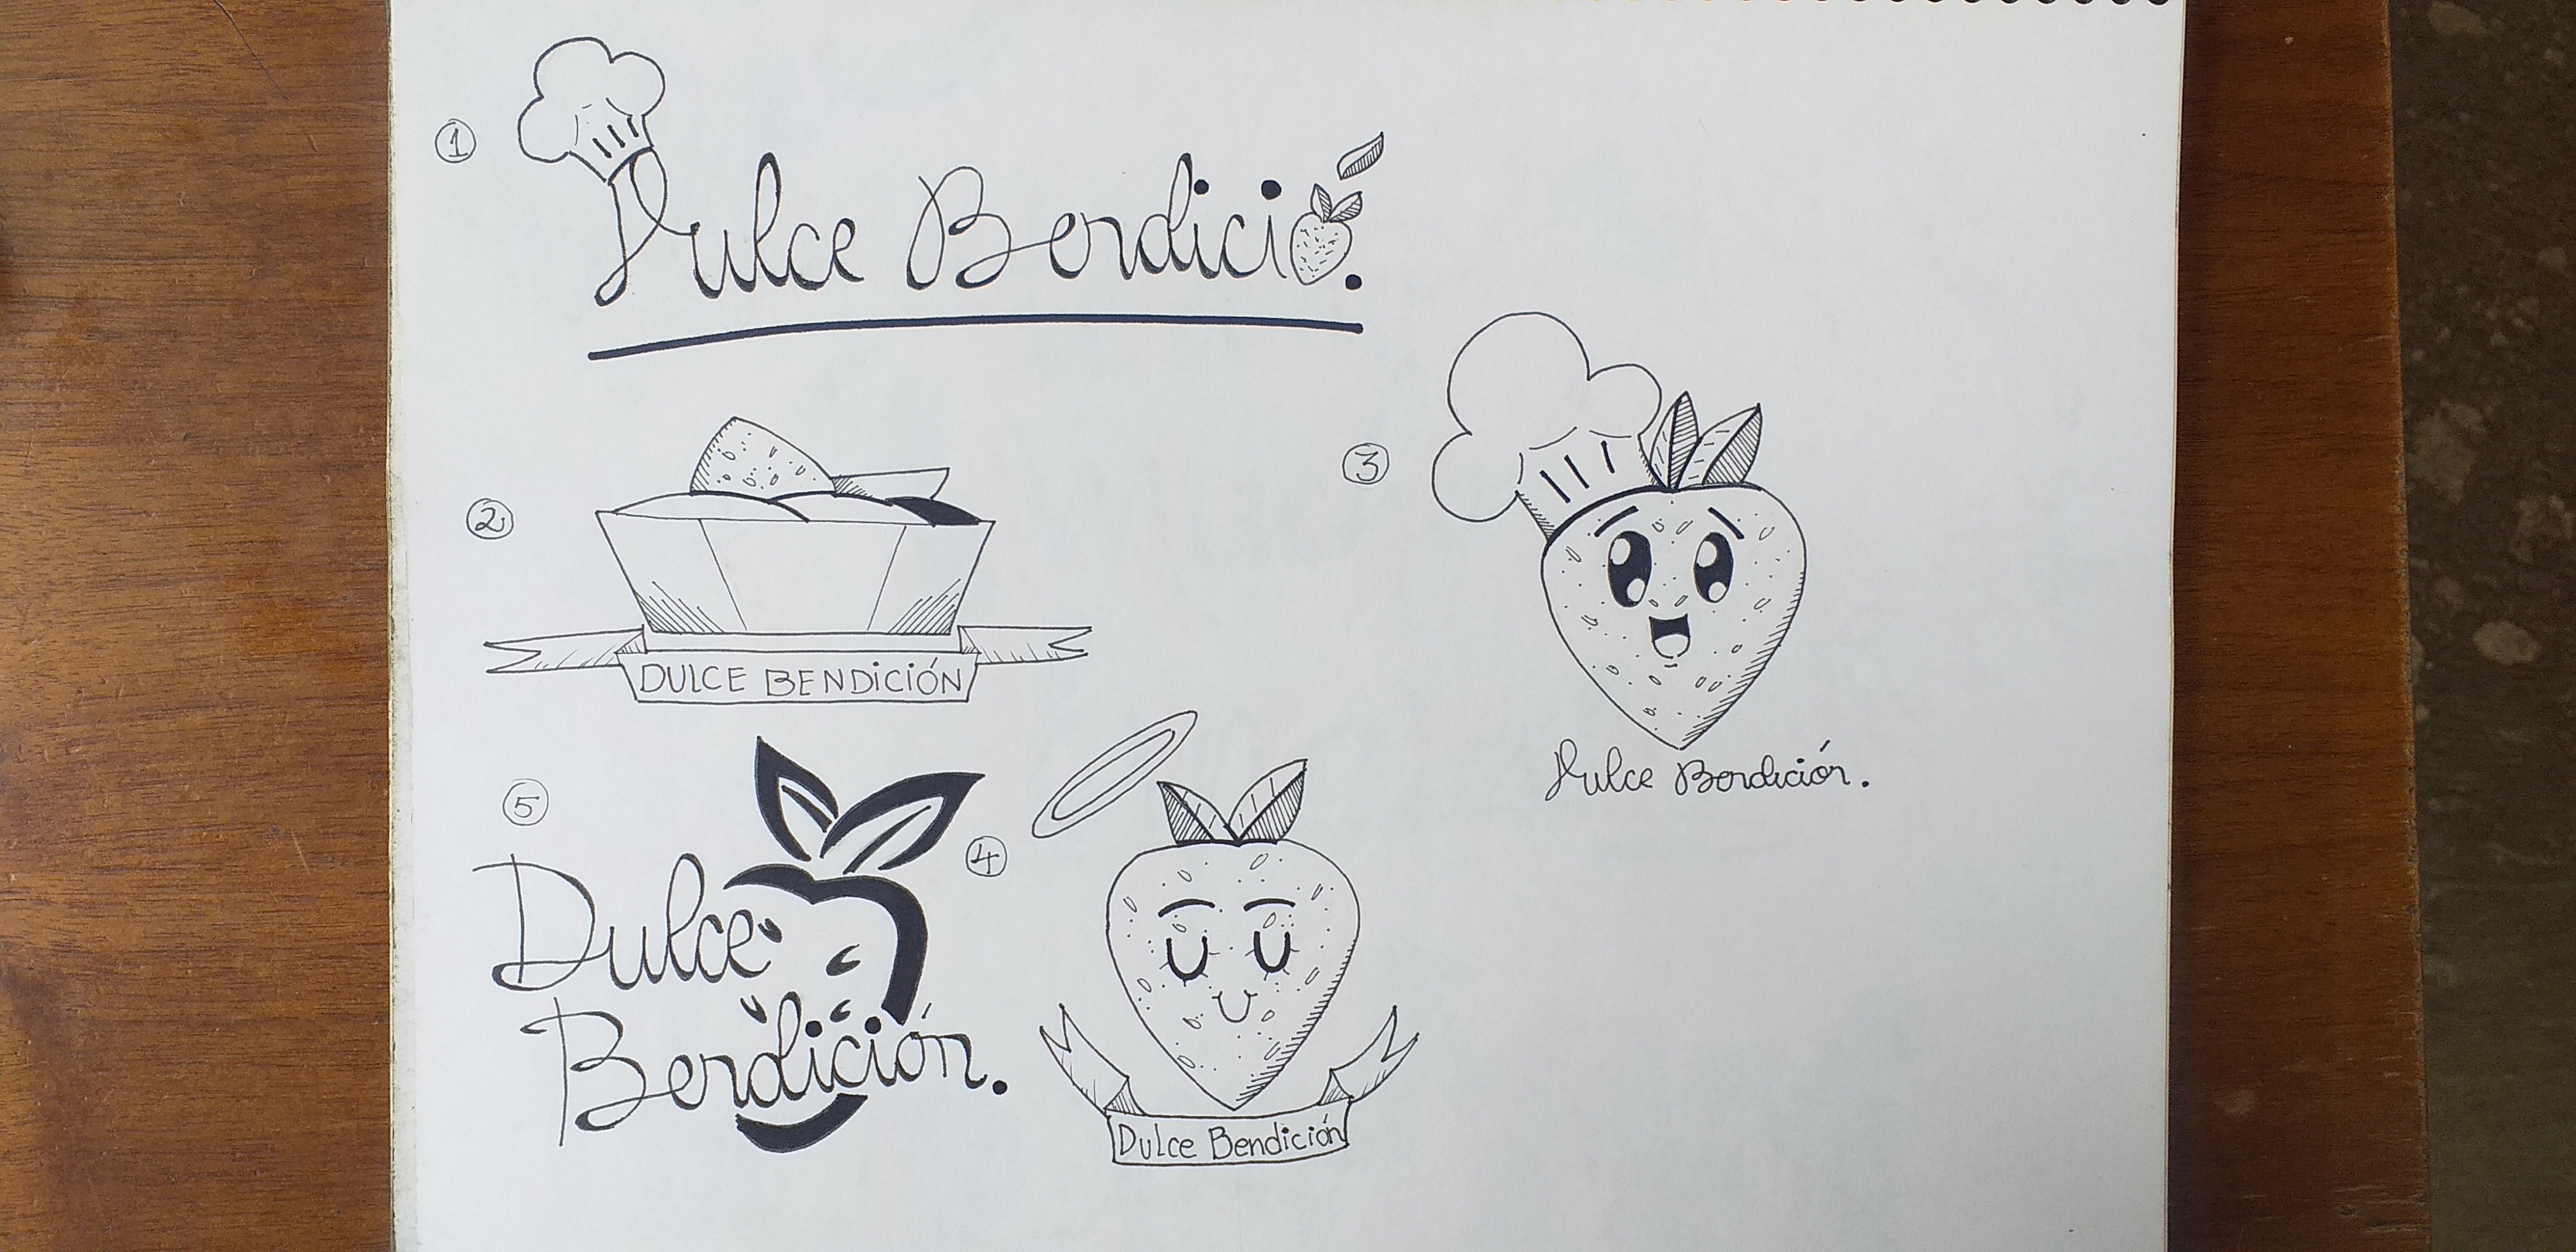 1
Dulce Bendició.
2
DULCE BENDiCiÓN
3
Dulce Bendición.
4
Dulce Bendición
5
Dulce
Bendición.